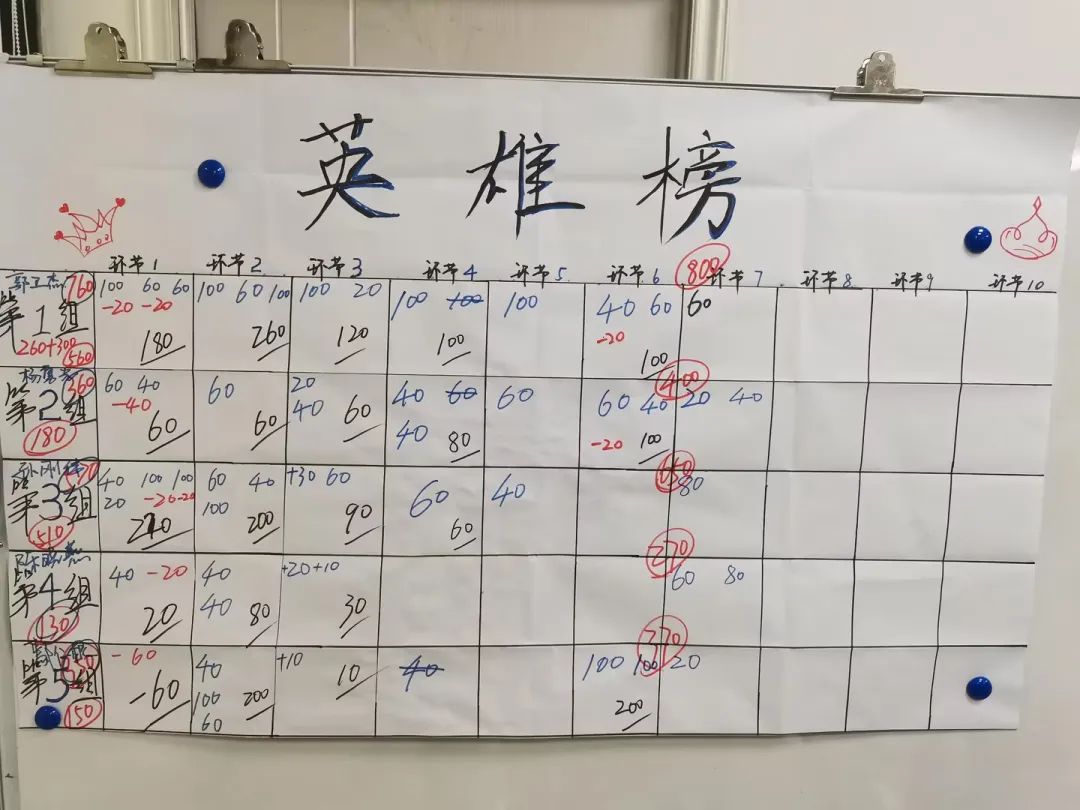 英雄榜
环节1 环节2 环节3 环节4 环节5 环节6 环节7 环节8 环节9 环节10
800
760 100 60 60 100 60 100 100 20 100 100 100 40 60 60
第1组 -20 -20 -20
260+300 560 180 260 120 100 100
400
360 60 40 60 20 40 60 60 60 40 20 40
第2组 -40 40 40 -20
180 60 60 60 80 100
40 100 100 60 40 +30 60 60 40 80
第3组 20 -20 -20 100
510 200 90 60
270
40 -20 40 +20 +10 60 80
第4组 40
130 20 80 30
370
-60 40 +10 40 100 100 20
第5组 100
150 -60 60 200 10 200